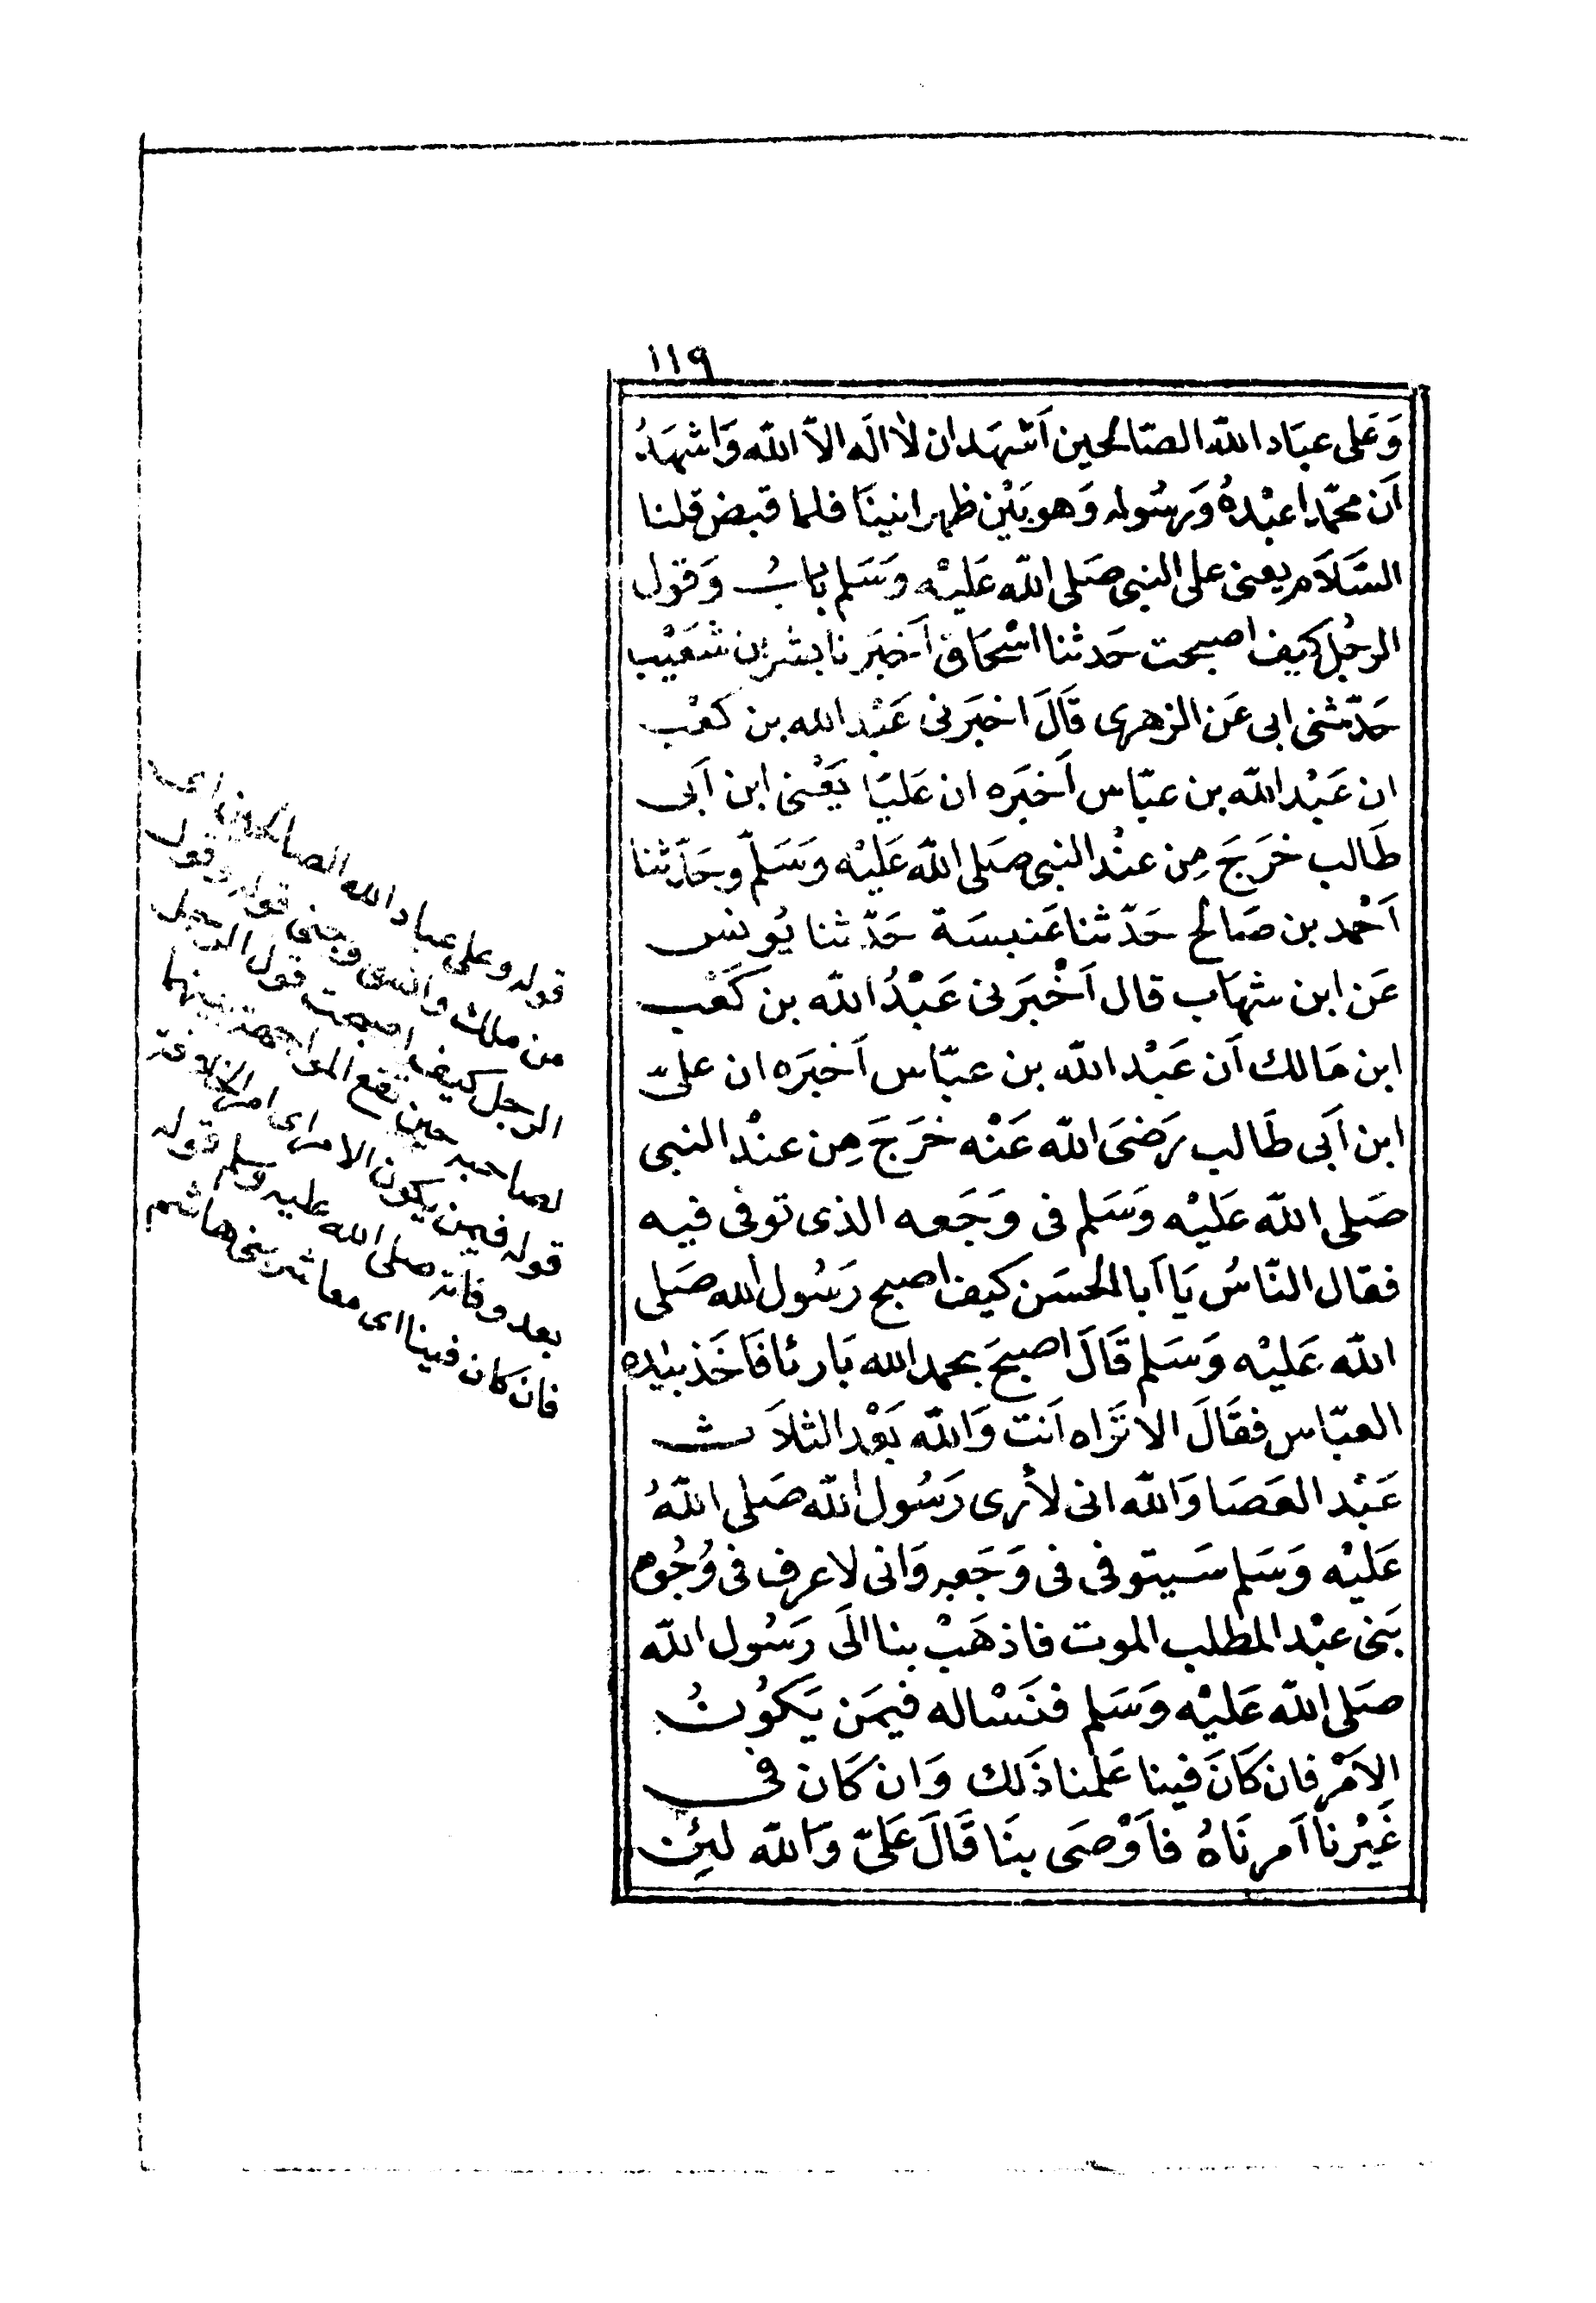 ١١٩
وَعَلى عبَاد الله الصّالحين اَشهَد ان لا الَه الاّ الله وَاشهَدُ
اَن محمّدا عبْدهُ وَرسُوله وَهو بَيْن ظهرانينَا فلما قبض قلنا
السَّلاَم يعنى على النبى صَلى الله عَليْه وَسَلم بابُ وَقول
الرجُل كيَف اصبحت حَدثنا اسْحَاق اَخبَرنا بشر بن شعَيْب
حَدّثنى ابى عَن الزهرى قَالَ اخبَرنى عَبْد الله بن كعْب
ان عَبْد الله بن عبّاس اَخبَره ان عَليّا يَعْنى ابن اَبى
طَالب خرَجَ مِن عنْد النبى صَلى الله عَليْه وَسَلّم وحَدّثنا
اَحْمد بن صَالح حَدّثنا عَنبسَة حَدّثنا يُونس
عَن ابن شهَاب قال اَخْبَرنى عَبْدُ الله بن كَعْب
ابن مَالك اَن عَبْد الله بن عبّاس اَخبَره ان علىّ
ابن اَبى طَالب رَضىَ الله عَنْه خرَجَ مِن عنْد النبى
صَلى الله عَليْه وَسَلم فى وَجَعه الذى توفى فيه
فقال النّاسُ يَا اَبا الحسَن كيف اصبح رَسُول الله صَلى
الله عَليْه وَسَلم قَالَ اصبحَ بحمد الله بَارئا فَاخَذ بيَده
العبّاس فقَالَ الا تَرَاه اَنت وَالله بَعْد الثلاَث
عَبْد العَصَا وَالله انى لأرى رَسُول الله صَلى اللهُ
عَليْه وَسَلم سَيتوفى فى وَجَعه وَانى لاعرف فى وُجُوه
بَنى عبْد المطلب الموت فاذهَبْ بنا الَى رَسُول الله
صَلى الله عَليْه وَسَلم فنَسْاله فيمَن يَكوُنُ
الاَمْر فان كَانَ فينا عَلمنا ذَلك وَان كَان فى
غَيْرنا اَمرنَاهُ فاَوْصَى بنَا قَالَ عَلىّ وَالله لئِن
قوله وعلى عباد الله الصالحين اى
من ملك وانس وجنى قوله وقول
الرجل كيف اصبحت قول الرجل
لصاحبه حين تقع المواجهة بينهما
قوله فيمن يكون الامر اى امر الخلافة
بعد وفاته صلى الله عليه وسلم قوله
فان كان فينا اى معاشر بنى هاشم